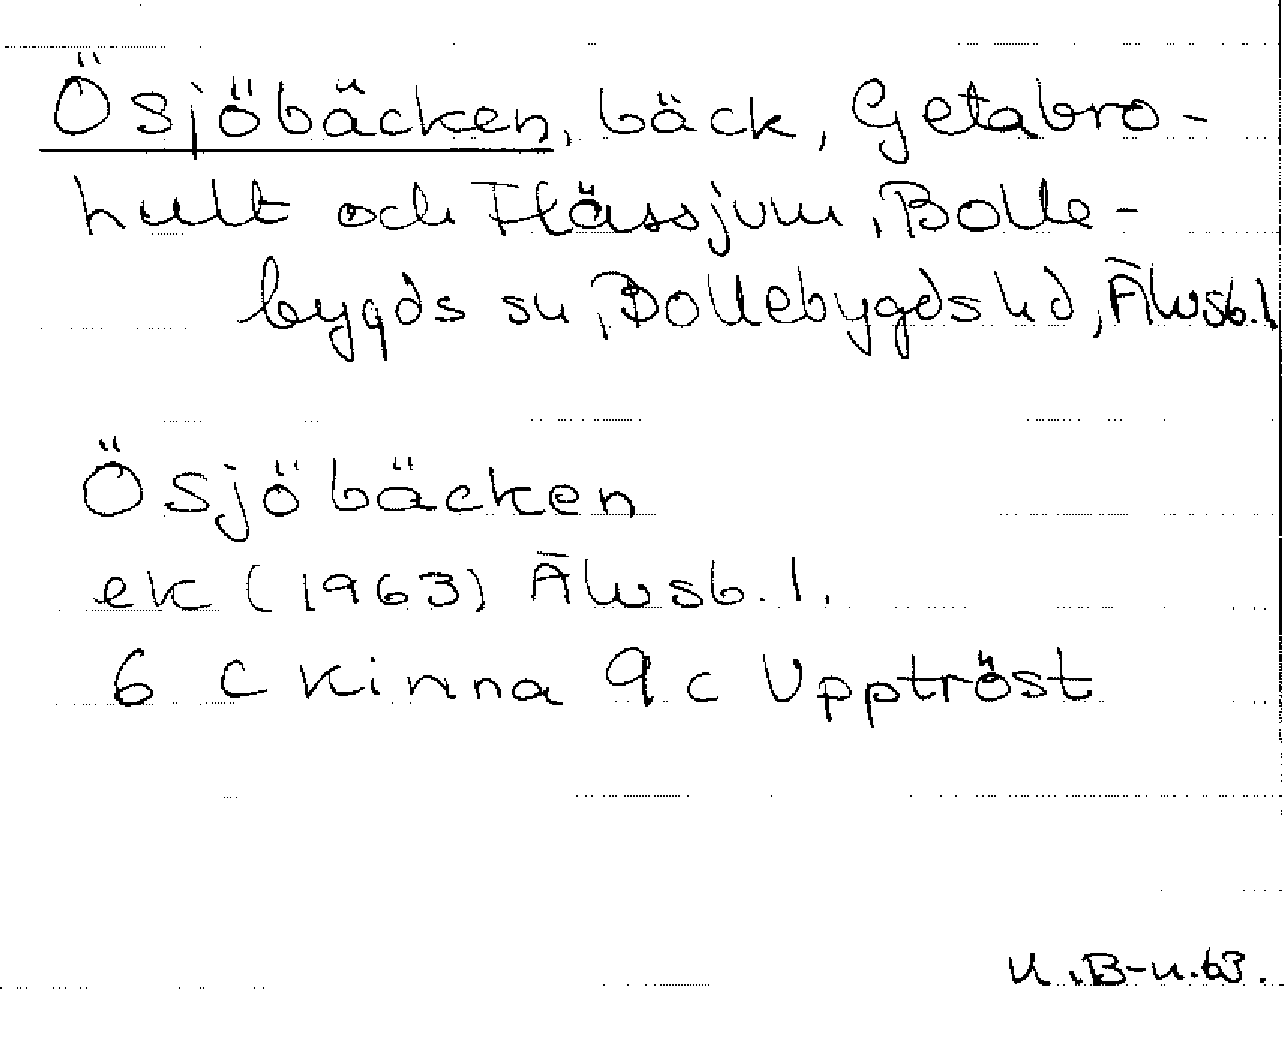 Ösjöbäcken, bäck, Getabro-
hult och Flässjum, Bolle-
bygds sn, Bollebygds hd, Älvsb. l
Ösjöbäcken
ek (1963) Älvsb. l.
6 c Kinna 9 c Upptröst
U.B-n.63.